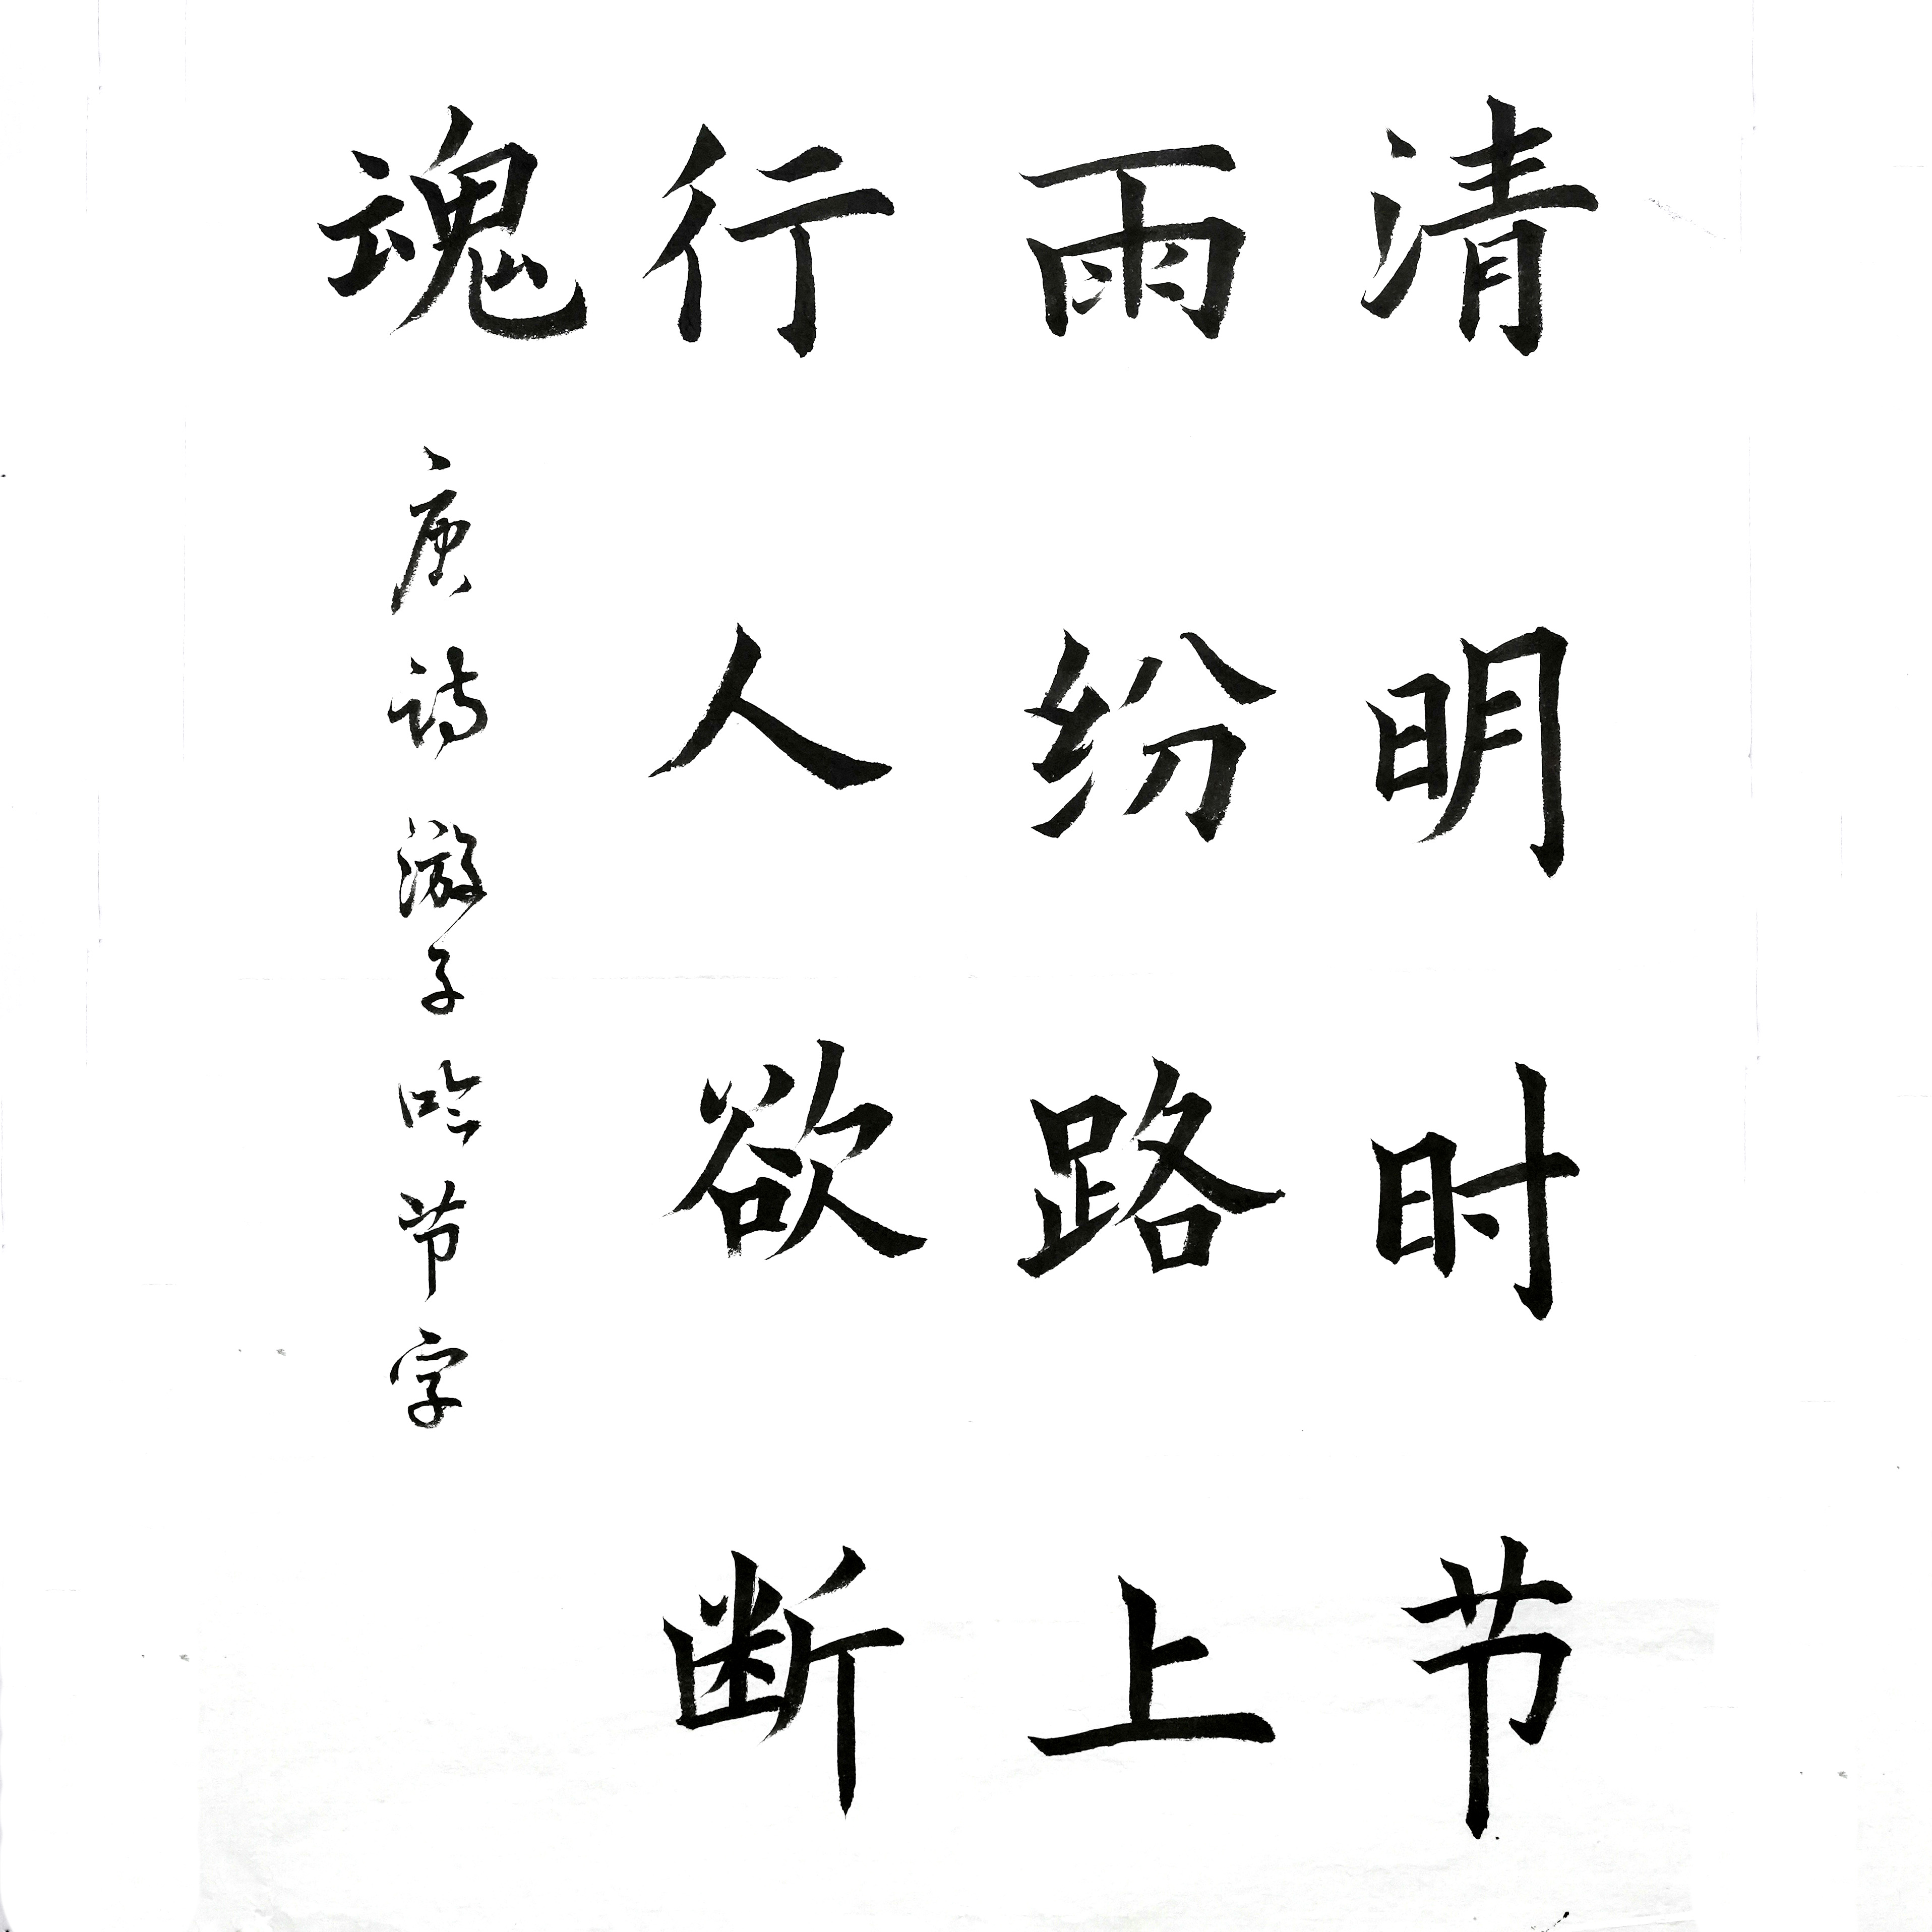 清明时节
雨纷路上
行人欲断
魂
唐诗游子吟节字